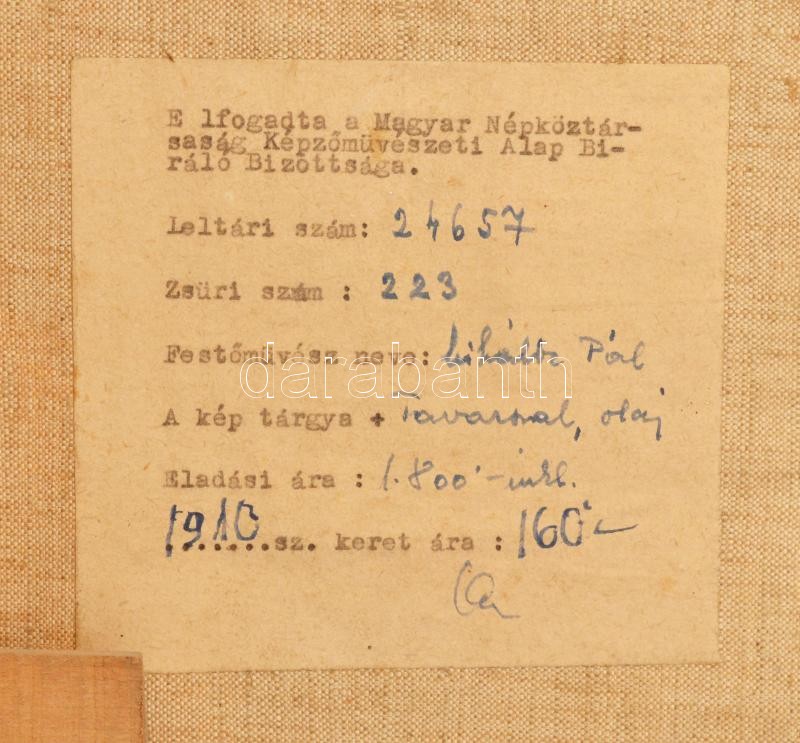 E lfogadta a Magyar Népköztár-
saság Képzőművészeti Alap Bi-
ráló Bizottsága.
Leltári szám: 24657
Zsüri szám : 223
Festőművész neve: Pál
darabanth
A kép tárgya + olaj
Eladási ára : 1.800'-
1910.......sz. keret ára : 160'-